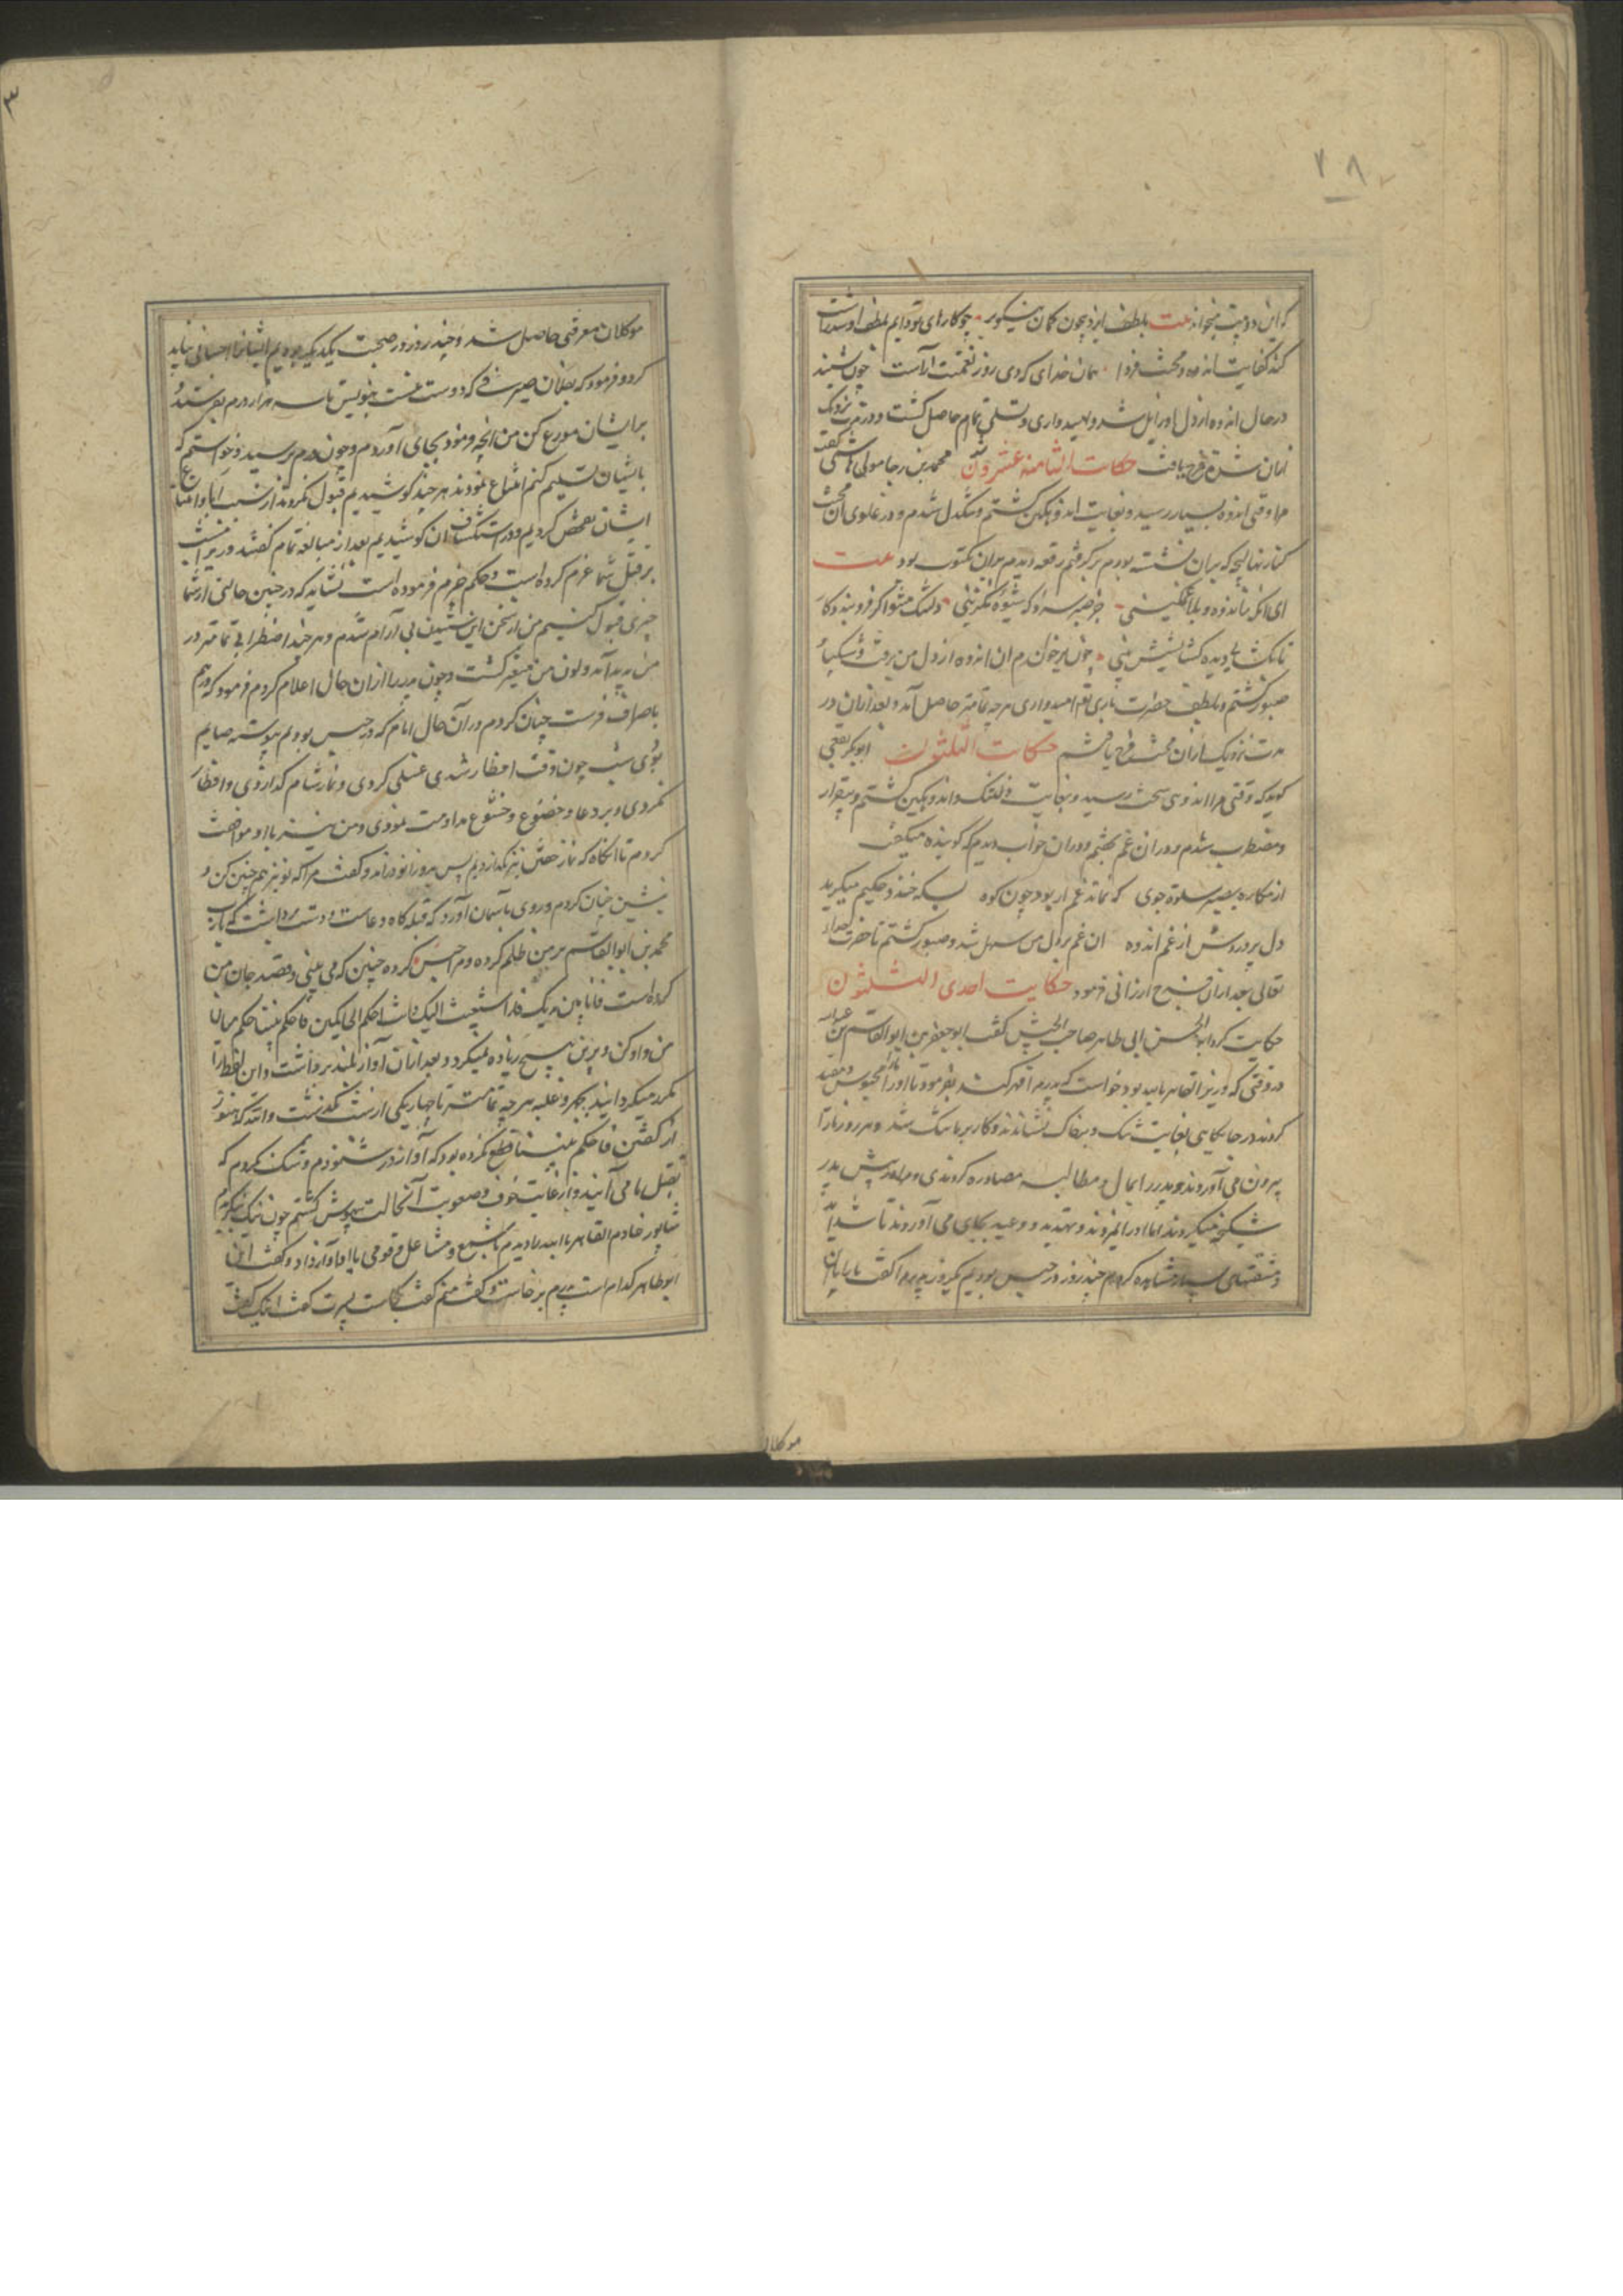 ۲۸
که این دو بیت میخواند بیت بلطف ایزد بیچون گمان نیکو بر چو کارهای تو دایم بلطف او شد راست
کند کفایت اندوه و محنت فردا همان خدای که دی روز نعمتت آراست چون بشنید
در حال اندوه از دل او زایل شد و امیدواری و تسلی تمام حاصل گشت و در مدت نزدیک
ازان شدة فرج یافت حکایت الثامنه عشرون محمد بن رجا مولی هاشمی گفت
مرا وقتی اندوه بسیار رسید و بغایت اندوهگین گشتم و تنگدل شدم و در غلوی آن محنت
کنار نهالیچه که بران نشسته بودم برگرفتم رقعه دیدم بران مکتوب بود بیت
ای آنکه باندوه و بلا غمگینی جز صبر که شیوه نگزینی دلتنگ مشو اگر فروبندد کار
تا یکشاید دیده گشایشش بینی چون برخواندم ان اندوه از دل من برفت و شکیبا و
صبور گشتم و بلطف حضرت باری تعا امیدواری هرچه تمامتر حاصل آمد و بعد ازان در
مدت نزدیک ازان محنت فرج یافتم حکایت الثلثون ابوبکر ثقفی
گوید که وقتی مرا اندوهی سخت رسید و بغایت دلتنگ و اندوهگین گشتم و بیقرار
و مضطرب شدم و دران غم بخفتم و دران خواب دیدم که گوینده میگفت
از مکاره بصبر سلوة جوی که نماند غم ار بود چون کوه بسکه خندد حکیم میگرید
دل پر دردش از غم اندوه ان غم بر دل من سهل شد و صبور گشتم تا حضرت خداوند
تعالی بعد ازان فرج ارزانی فرمود حکایت احدی الثلثون
حکایت کرد ابوالحسن ابی طاهر صاحب الجیش گفت ابو جعفر بن ابو القاسم بن عبید
در وقتی که وزیر القاهر بالله بود خواست که پدرم را قهر کند بفرمود تا او را محبوس و مقید
کردند در جایگاهی بغایت تنگ و بر خاک نشاندند و کار بر ما تنگ شد و هر روز ما را
بیرون می آوردند و پدر را بمال و مطالبه مصادره کردندی و مرا در پیش پدر
شکنجه میکردند اما او را نمیزدند و تهدید و وعید بجای می آوردند تا شداید
و مشقتهای بسیار مشاهده کردم چند روز در حبس بودیم یکروز پدرم را گفت ما را با این
موکلان
۳
موکلان معرفتی حاصل شد و چند روز در صحبت یکدیگر بودیم ایشانرا احسانی باید
کرد و فرمود که بفلان صیرفی که دوست منست بنویس تا سه هزار درم بفرستد و
بر ایشان موزع کن من انچه فرمود بجای آوردم و چون درم برسید و خواستم که
بایشان تسلیم کنم امتناع نمودند هر چند کوشیدیم قبول نکردند از سبب ابا و امتناع
ایشان تفحص کردیم و در استکشاف ان کوشیدیم بعد از مبالغه تمام گفتند وزیر امشب
بر قتل شما عزم کرده است و حکم جزم فرموده است نشاید که در چنین حالتی از شما
چیزی قبول کنیم من از سخن ایشان شنیدن بی آرام شدم و هر چند اضطرابی تمامتر در
من پدید آمد و لون من متغیر گشت و چون پدر را ازان حال اعلام کردم فرمود که درم
باصراف فرست چنان کردم و در آن حال ایام که در حبس بودیم پیوسته صایم
بودی شب چون وقت افطار شدی غسلی کردی و نماز شام گذاردی و افطار
نکردی و بر دعا و خضوع و خشوع مداومت نمودی و من نیز با او موافقت
کردم تا آنگاه که نماز خفتن نیز بگذاردیم پس بدو زانو درآمد و گفت مرا که تو نیز هم چنین کن و
بنشین چنان کردم و روی باسمان آورد که قبله گاه دعاست و دست برداشت که یارب
محمد بن ابو القاسم بر من ظلم کرده و مرا حبس کرده چنین که می بینی و قصد جان من
کرده است فانا بین یدیک قد استغیث الیک فانت احکم الحاکمین فاحکم بیننا حکم میان
من و او کن و برین هیچ زیاده نمیکرد و بعد ازان آواز بلند برداشت و این لفظ را
مکرر میگردانید بجهر و غلبه هر چه تمامتر تا چهار یکی از شب بگذشت والله که هنوز
از گفتن فاحکم بیننا قطع نکرده بود که آواز در شنودم و شک نکردم که
بقتل ما می آیند و از غایت خوف و صعوبت آنحالت بیهوش گشتم چون نیک بنگریدم
شاپور خادم القاهر بالله را دیدم با شمع و مشاعل و قومی با او آواز داد و گفت این
ابو طاهر کدام است پدرم برخاست و گفت منم گفت کجاست پسرت گفت اینک گفت